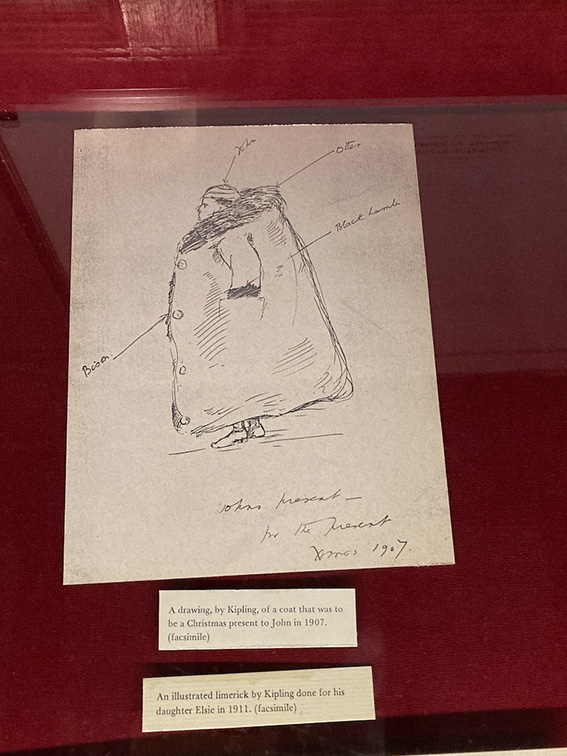 John
Otter
Black Lamb
Bison
Johns present —
for the present
Xmas 1907.
A drawing, by Kipling, of a coat that was to
be a Christmas present to John in 1907.
(facsimile)
An illustrated limerick by Kipling done for his
daughter Elsie in 1911. (facsimile)